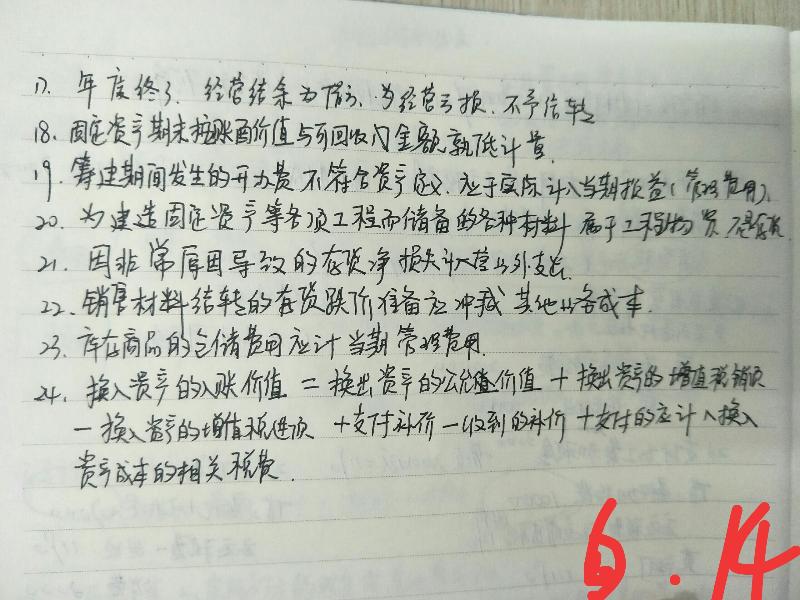 17. 年度终了、经营结余为借方、为经营亏损、不予结转
18. 固定资产期末按账面价值与可回收金额孰低计量.
19. 筹建期间发生的开办费不符合资产定义、应于实际计入当期损益(管理费用)、
20. 为建造固定资产等各项工程而储备的各种材料属于工程物资 不是存货
21. 因非常原因导致的存货净损失计入营业外支出.
22. 销售材料结转的存货跌价准备应冲减其他业务成本.
23. 库存商品的仓储费用应计当期管理费用.
24. 换入资产的入账价值 = 换出资产的公允价值 + 换出资产的增值税销项
- 换入资产的增值税进项 + 支付补价 - 收到的补价 + 支付的应计入换入
资产成本的相关税费.
6.14